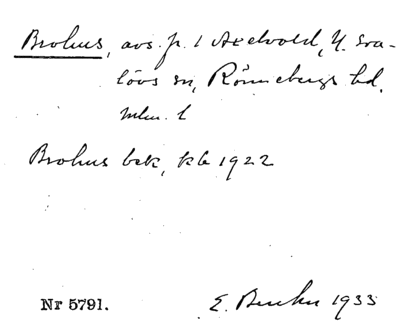 Brohus, avs. fr. 1 Axelvold, N. Sva-
lövs sn, Rönnebergs hd,
Mlm. l
Brohus bek, kb 1922
Nr 5791. E. 1933